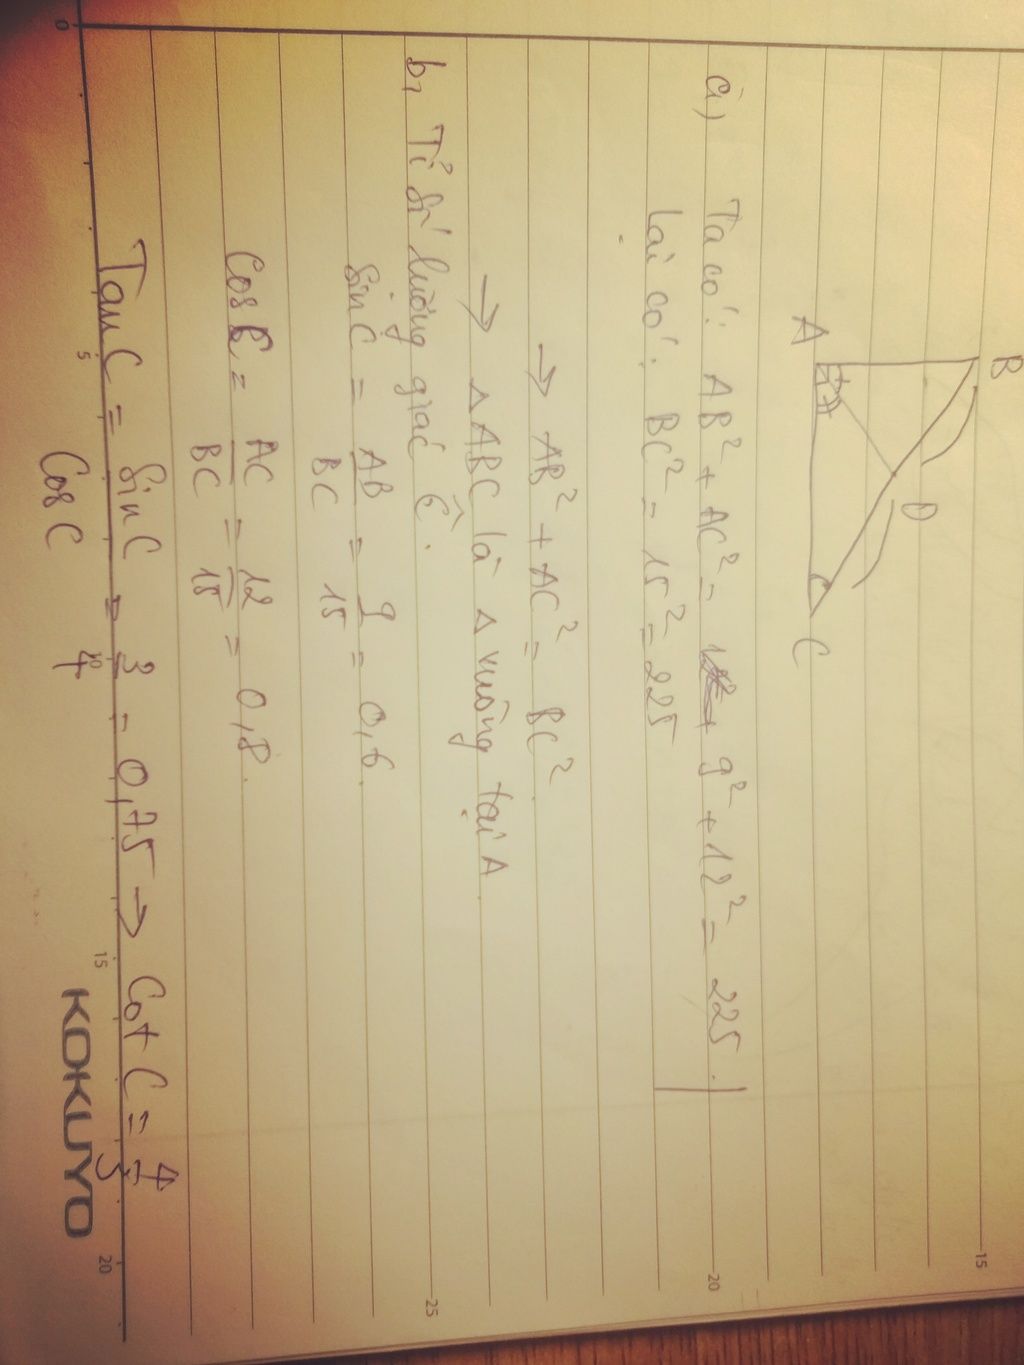 B
D
A
C
a) Ta có: AB² + AC² = 9² + 12² = 225.
Lại có: BC² = 15² = 225
→ AB² + AC² = BC².
→ Δ ABC là Δ vuông tại A.
b, Tỉ số lượng giác Ĉ.
Sin C = AB/BC = 9/15 = 0,6.
Cos C = AC/BC = 12/15 = 0,8.
Tan C = Sin C/Cos C = 3/4 = 0,75 → Cot C = 4/3
0 5 10 15 20
15
20
25
KOKUYO